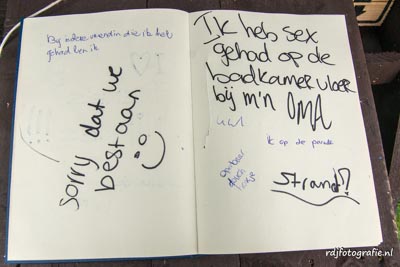 Bij iedere vriendin die ik heb
gehad ben ik
sorry dat we
bestaan
Ik heb sex
gehad op de
badkamer vloer
bij m'n OMA
ik op de parade
strand?
rdjfotografie.nl